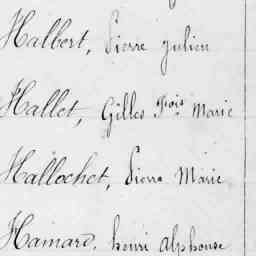 Halbert, Pierre Julien
Hallet, Gilles Fois Marie
Hallochet, Pierre Marie
Hamard, henri alphonse